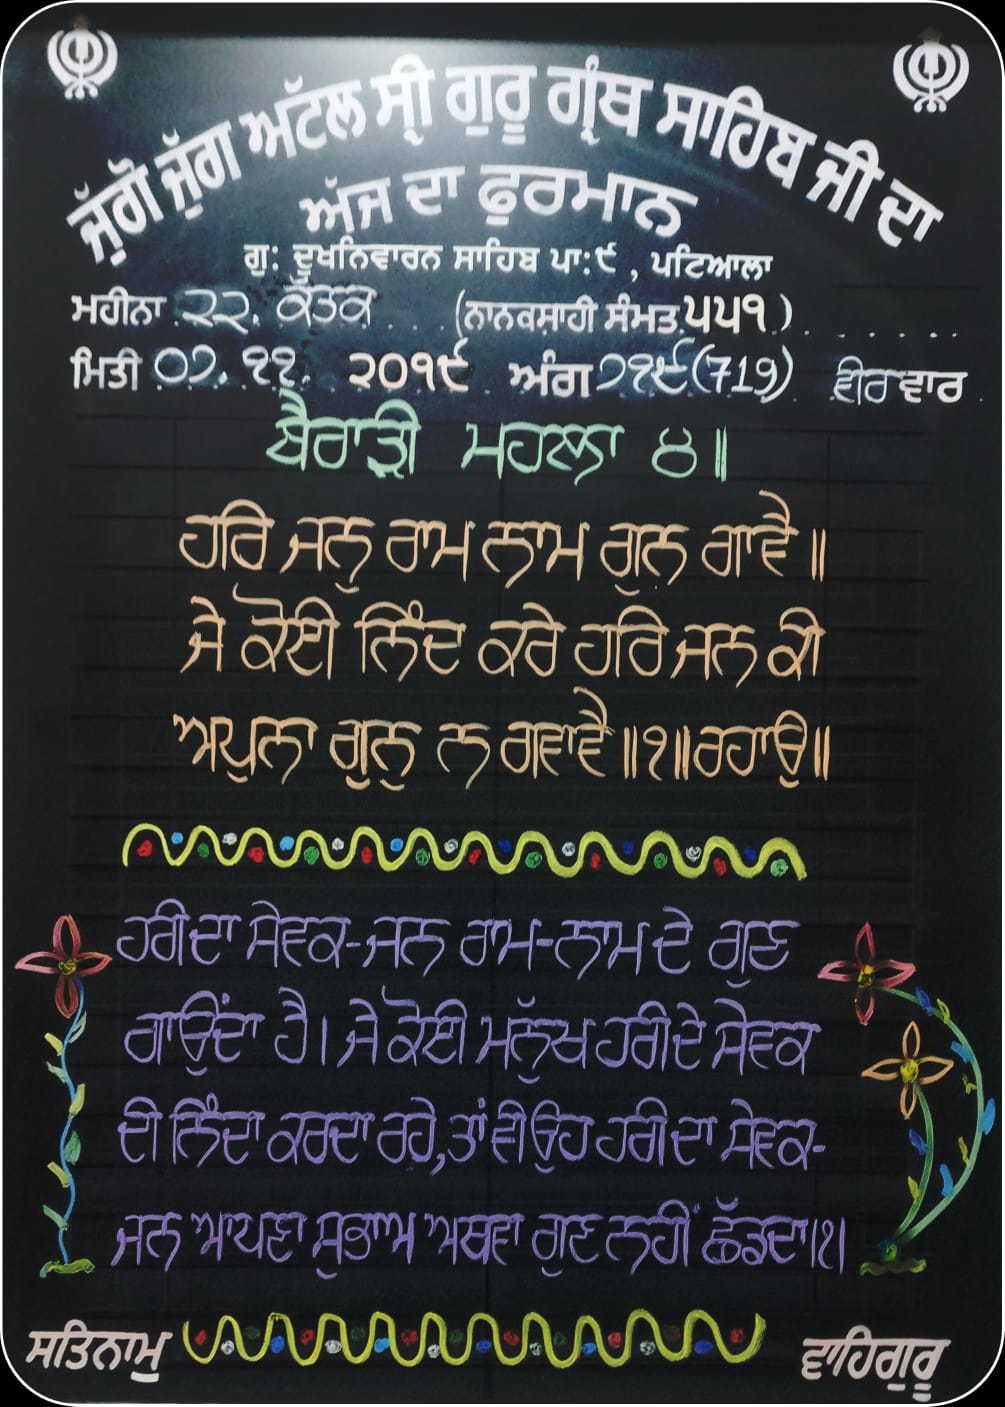 ਜੁੱਗੋ ਜੁੱਗ ਅਟੱਲ ਸ੍ਰੀ ਗੁਰੂ ਗ੍ਰੰਥ ਸਾਹਿਬ ਜੀ ਦਾ
ਅੱਜ ਦਾ ਫੁਰਮਾਨ
ਗੁ: ਦੂਖਨਿਵਾਰਨ ਸਾਹਿਬ ਪਾ:੯ , ਪਟਿਆਲਾ
ਮਹੀਨਾ ੨੨. ਕੱਤਕ (ਨਾਨਕਸ਼ਾਹੀ ਸੰਮਤ ੫੫੧)
ਮਿਤੀ ੦੭. ੧੧. ੨੦੧੯ ਅੰਗ ੭੧੯(719) ਵੀਰਵਾਰ
ਬੈਰਾੜੀ ਮਹਲਾ ੪॥
ਹਰਿ ਜਨੁ ਰਾਮ ਨਾਮ ਗੁਨ ਗਾਵੈ॥
ਜੇ ਕੋਈ ਨਿੰਦ ਕਰੇ ਹਰਿ ਜਨ ਕੀ
ਅਪੁਨਾ ਗੁਨੁ ਨ ਗਵਾਵੈ॥੧॥ਰਹਾਉ॥
ਹਰੀ ਦਾ ਸੇਵਕ-ਜਨ ਰਾਮ-ਨਾਮ ਦੇ ਗੁਣ
ਗਾਉਂਦਾ ਹੈ। ਜੇ ਕੋਈ ਮਨੁੱਖ ਹਰੀ ਦੇ ਸੇਵਕ
ਦੀ ਨਿੰਦਾ ਕਰਦਾ ਰਹੇ, ਤਾਂ ਵੀ ਉਹ ਹਰੀ ਦਾ ਸੇਵਕ-
ਜਨ ਆਪਣਾ ਸੁਭਾਅ ਅਥਵਾ ਗੁਣ ਨਹੀਂ ਛੱਡਦਾ।੧।
ਸਤਿਨਾਮੁ ਵਾਹਿਗੁਰੂ